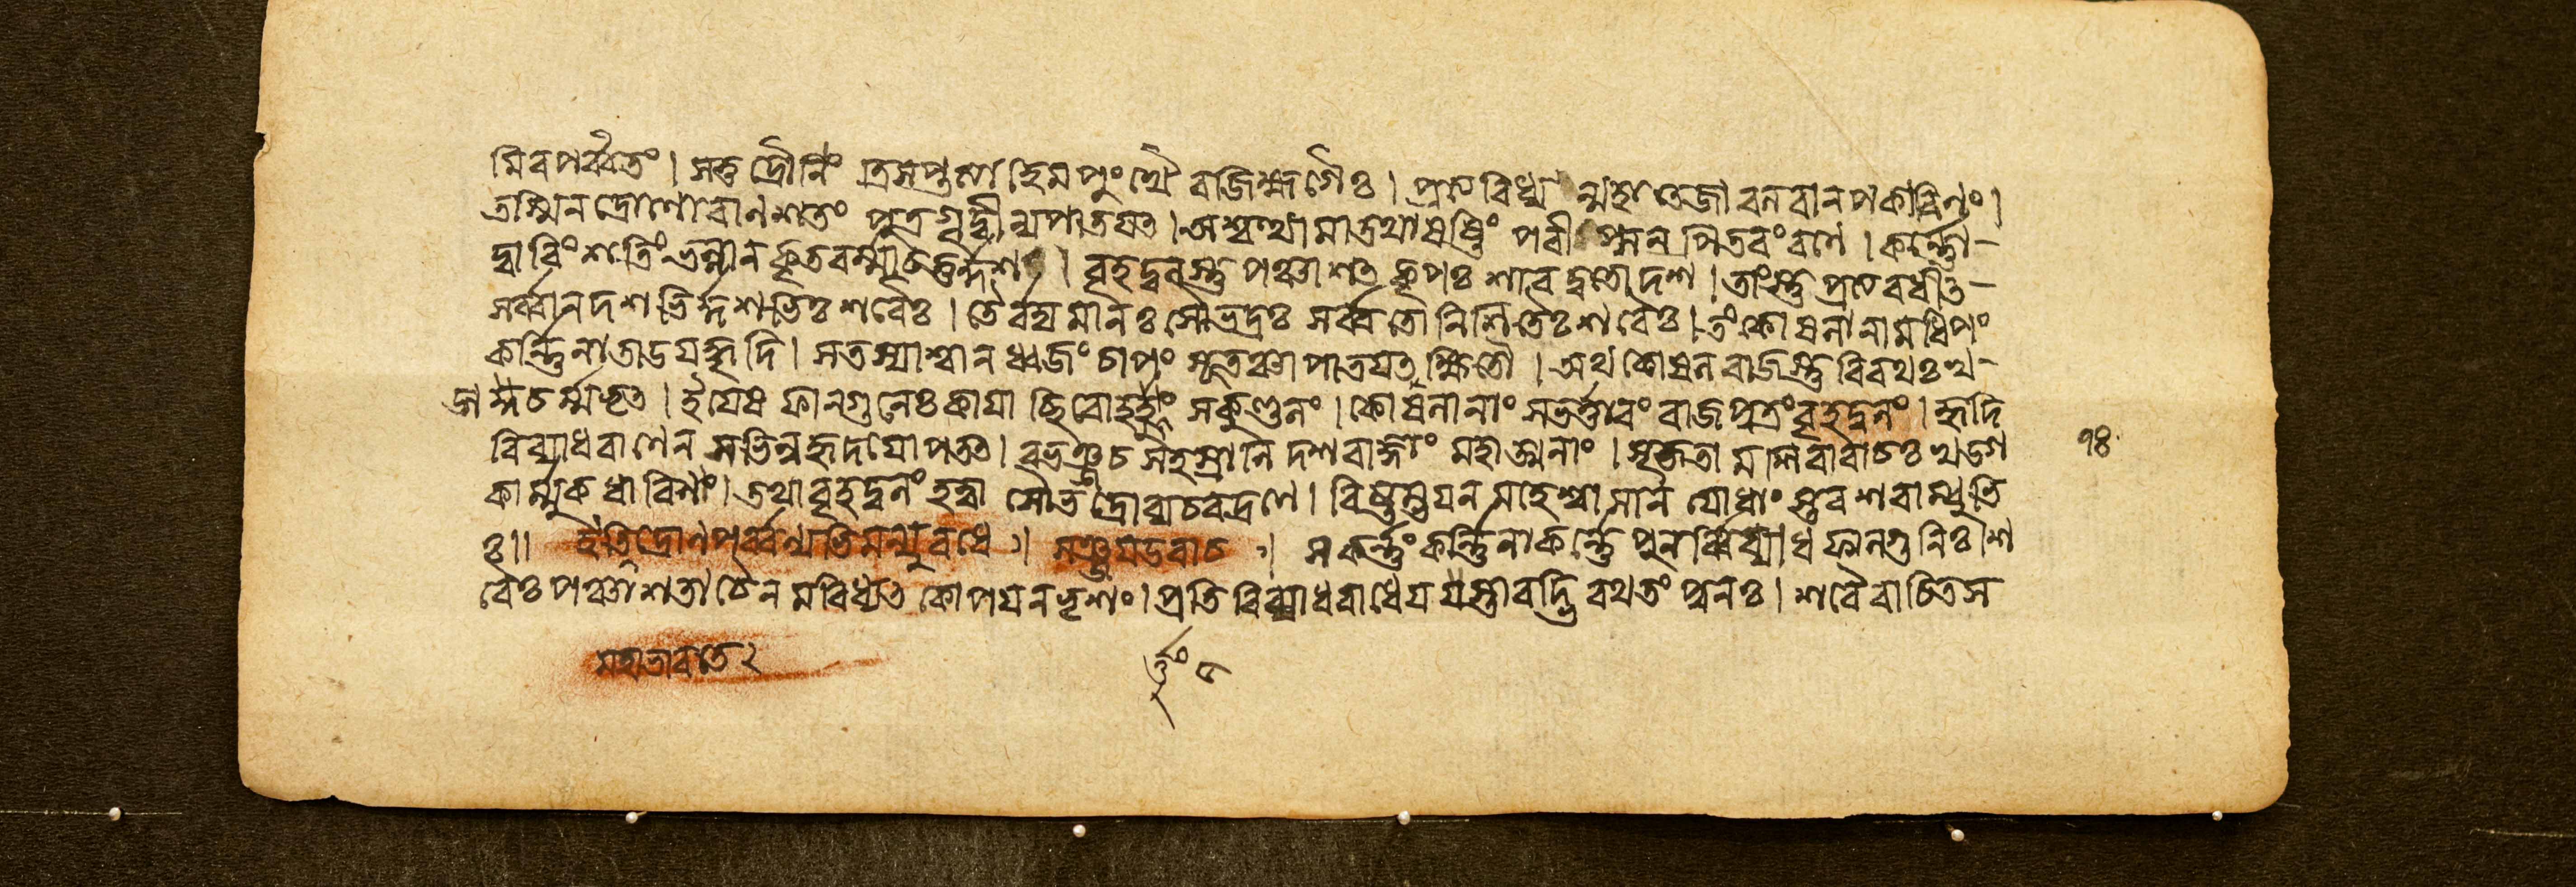 মিব পর্ব্বতং। সতু দ্রৌনিং ত্রিসপ্তত্যা হেমপুংখৈ রজিহ্মগৈঃ। প্রত্যবিধ্য ন্মহাতেজা বলবানপকারিনং।
তস্মিন দ্রোণো বাণ শতং পুত্রগৃদ্ধী ন্যপাতয়ৎ। অশ্বত্থামা তথাষষ্ঠিং পরী প্সন পিতরং রণে। কর্ন্নো-
দ্বা বিংশতিং ভল্লান কৃতবর্ম্মা চতুর্দ্দশ। বৃহদ্বলস্তু পঞ্চাশৎ কৃপঃ শারদ্বতো দশ। তাংস্তু প্রত্যবধীৎ-
সর্ব্বান দশভির্দ্দশভিঃ শরৈঃ। তৈ র্বধ্য মানঃ সৌভদ্রঃ সর্ব্বতো নিশিতৈঃ শরৈঃ। তং কোষলানামধিপং
কর্ন্নিনাতাডয়দ্ধৃদি। সতস্যাশ্বান ধ্বজং চাপং সূতঞ্চাপাতয়ৎ ক্ষিতৌ। অথ কোষল রাজস্তু বিরথঃ খ-
ড্গচর্ম্মধৃত। ইয়েষ ফাল্গুনেঃ কায়াচ্ছিরোহর্ত্তুং সকুণ্ডলং। কোষলানাং সভর্ত্তারং রাজপুত্রং বৃহদ্বলং। হৃদি
বিব্যাধ বাণেন সভিন্নহৃদয়োপতৎ। বভঞ্জ চ সহস্রানি দশ রাজ্ঞাং মহাত্মনাং। সৃজতা মশিবাবাচঃ খড্গ
কার্ম্মুক ধারিণাং। তথা বৃহদ্বলং হত্বা সৌভদ্রো ব্যচরদ্রণে। বিষ্টম্ভয়ন মহেশ্বাসান যোধাং স্তব শরাম্বুভি
ঃ॥ ইতি দ্রোণপর্ব্বন্যভিমন্যু বধে। সঞ্জয়উবাচ। স কর্ন্নং কর্ন্নিনা কর্ন্নে পুনর্ব্বিব্যাধ ফাল্গুনিঃ। শ
রৈঃ পঞ্চাশতা চৈন মবিধ্যৎ কোপয়ন ভৃশং। প্রতি বিব্যাধ রাধেয় স্তাবদ্ভি রথ তং পুনঃ। শরৈ রাচিত স
১৪
মহাভারতে